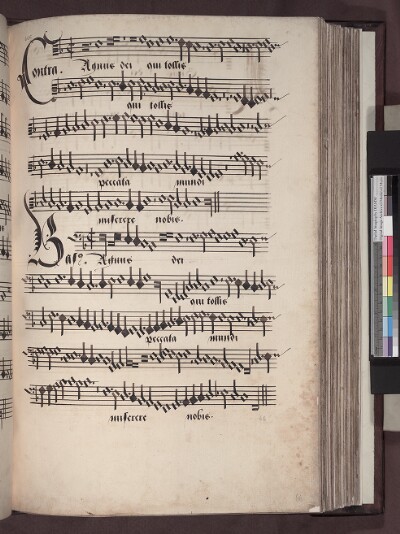 Contra. Agnus dei qui tollis
qui tollis
peccata mundi
miserere nobis.
Bass9. Agnus dei
qui tollis
peccata mundi
miserere nobis.